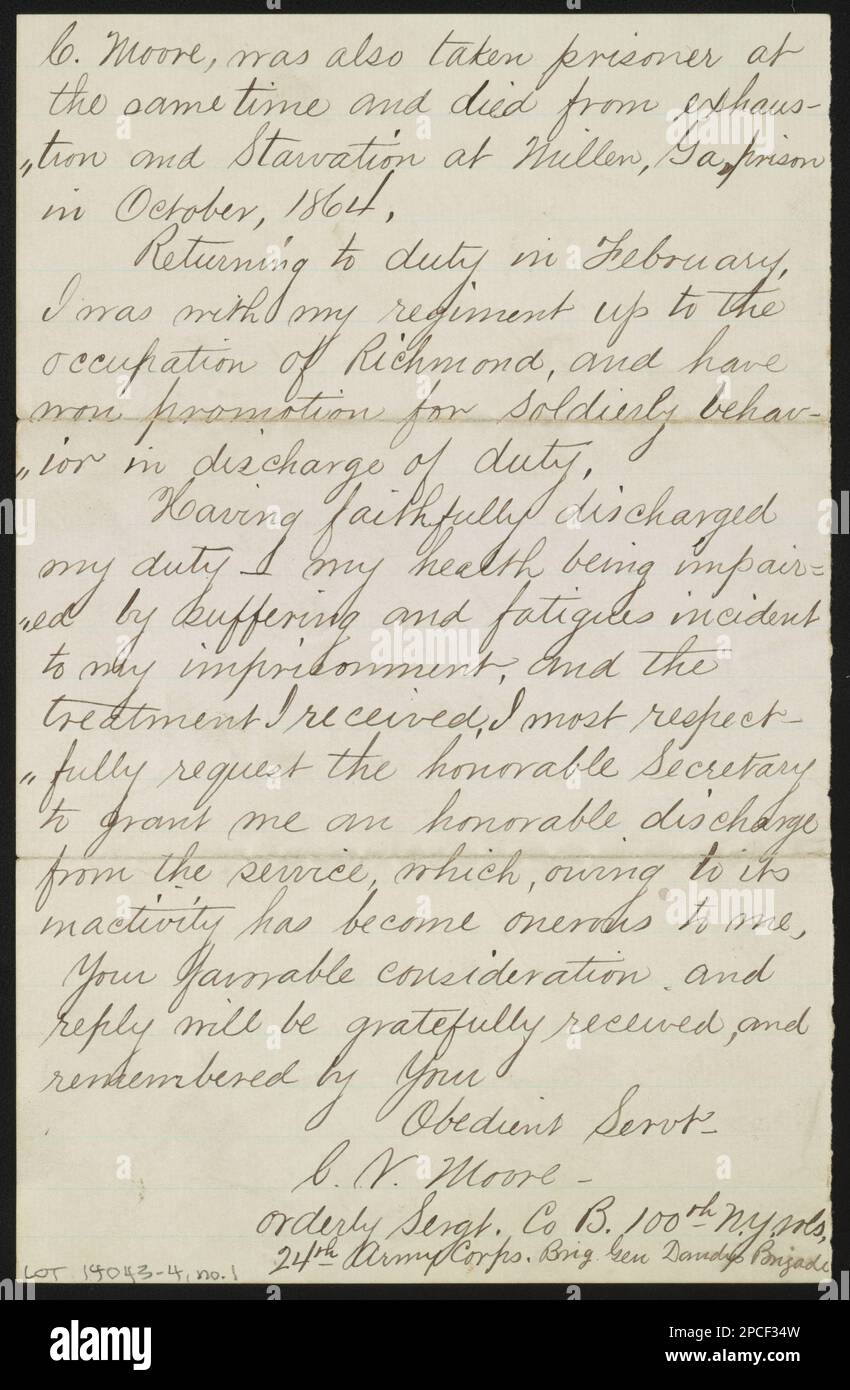 C. Moore, was also taken prisoner at
the same time and died from exhaus-
„tion and Starvation at Millen, Ga, prison
in October, 1864.
Returning to duty in February,
I was with my regiment up to the
occupation of Richmond, and have
won promotion for soldierly behav-
„ior in discharge of duty.
Having faithfully discharged
my duty — my health being impair=
„ed by suffering and fatigues incident
to my imprisonment, and the
treatment I received, I most respect-
„fully request the honorable Secretary
to grant me an honorable discharge
from the service, which, owing to its
inactivity has become onerous to me,
Your favorable consideration and
reply will be gratefully received, and
remembered by Your
Obedient Servt-
C. V. Moore -
orderly Sergt. Co B. 100th N.y. vols,
24th Army Corps. Brig Gen Dandys Brigade
LOT 14043-4, no. 1
alamy
Image ID: 2PCF34W
www.alamy.com